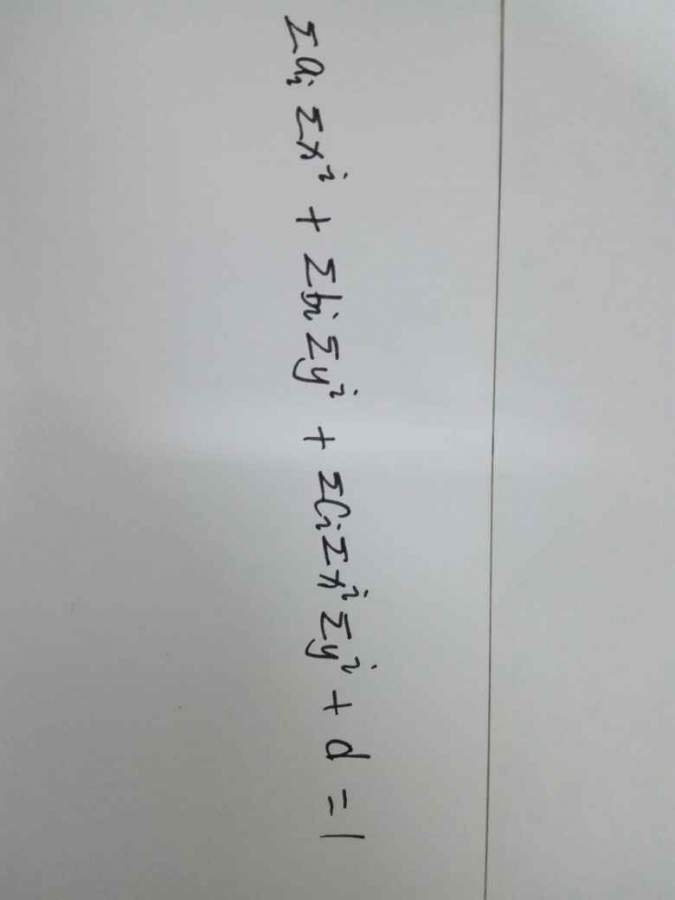 Σaᵢ Σxⁱ + Σbᵢ Σyⁱ + Σcᵢ Σxⁱ Σyⁱ + d = 1